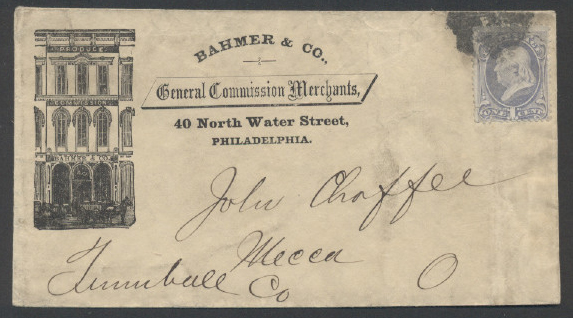 BAHMER & CO.,
General Commission Merchants,
40 North Water Street,
PHILADELPHIA.
PRODUCE
COMMISSION
BAHMER & CO.
John Chaffee
Mecca
Trumball Co O